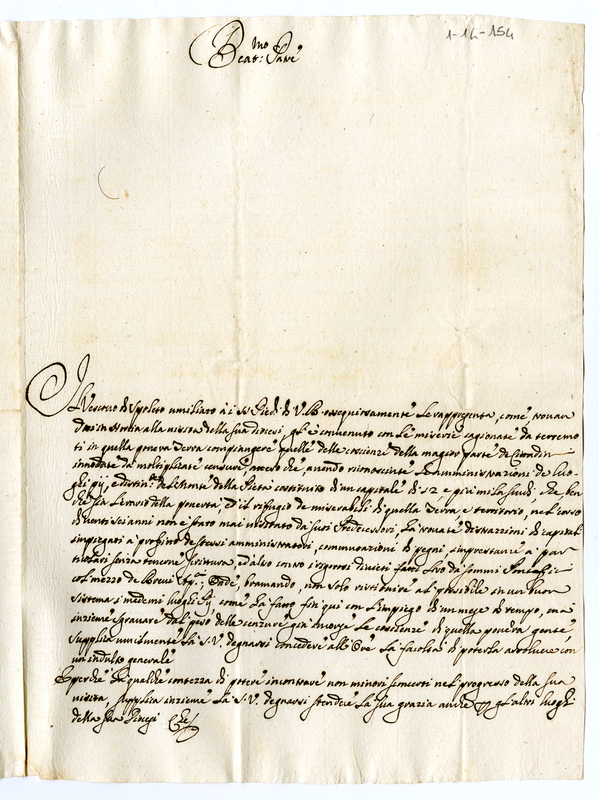 1-14-154
Beat.mo Padre
Il Vescovo di Spoleto umiliato à i SS. Piedi di V.B. ossequiosamente le rappresenta, come trovan
dosi in Norcia alla visita della sua diocesi gl'è convenuto con le miserie cagionate da terremo
ti in quella povera Terra compiangere quelle delle coscienze della maggior parte de Cittadini
innodate da moltiplicate censure, perche avendo riconosciute l'amministrazioni de luo
ghi pij, e del Monte della Pietà costituito d'un capitale di 12 e più mila scudi, che ben
che sia l'erario della povertà, et il rifugio de miserabili di quella Terra e territorio, nel corso
di venti sei anni non è stato mai visitato da suoi Predecessori, hà trovate distrazzioni di capitali
impiegati à profitto de stessi amministratori, commutazioni di pegni, imprestanze à par
ticolari senza tenerne scrittura, et altro contro i rigorosi divieti fatti da sommi Pontefici
col mezzo de Brevi Onde bramando, non solo ristituire al possibile in un buon
sistema i medemi luoghi Pij, come hà fatto fin qui con l'impiego di un mese di tempo, mà
insieme sgravare dal peso delle censure le coscienze di quella povera gente,
supplica umilmente la S.V. degnarsi concedere all'Ore la facoltà di poterla assolvere con
un indulto generale
E perche hà qualche contezza di potere incontrare non minori sconcerti nel progresso della sua
visita, supplica insieme la S.V. degnarsi stendere la sua grazia anche gl'altri luoghi
della sua Diocesi